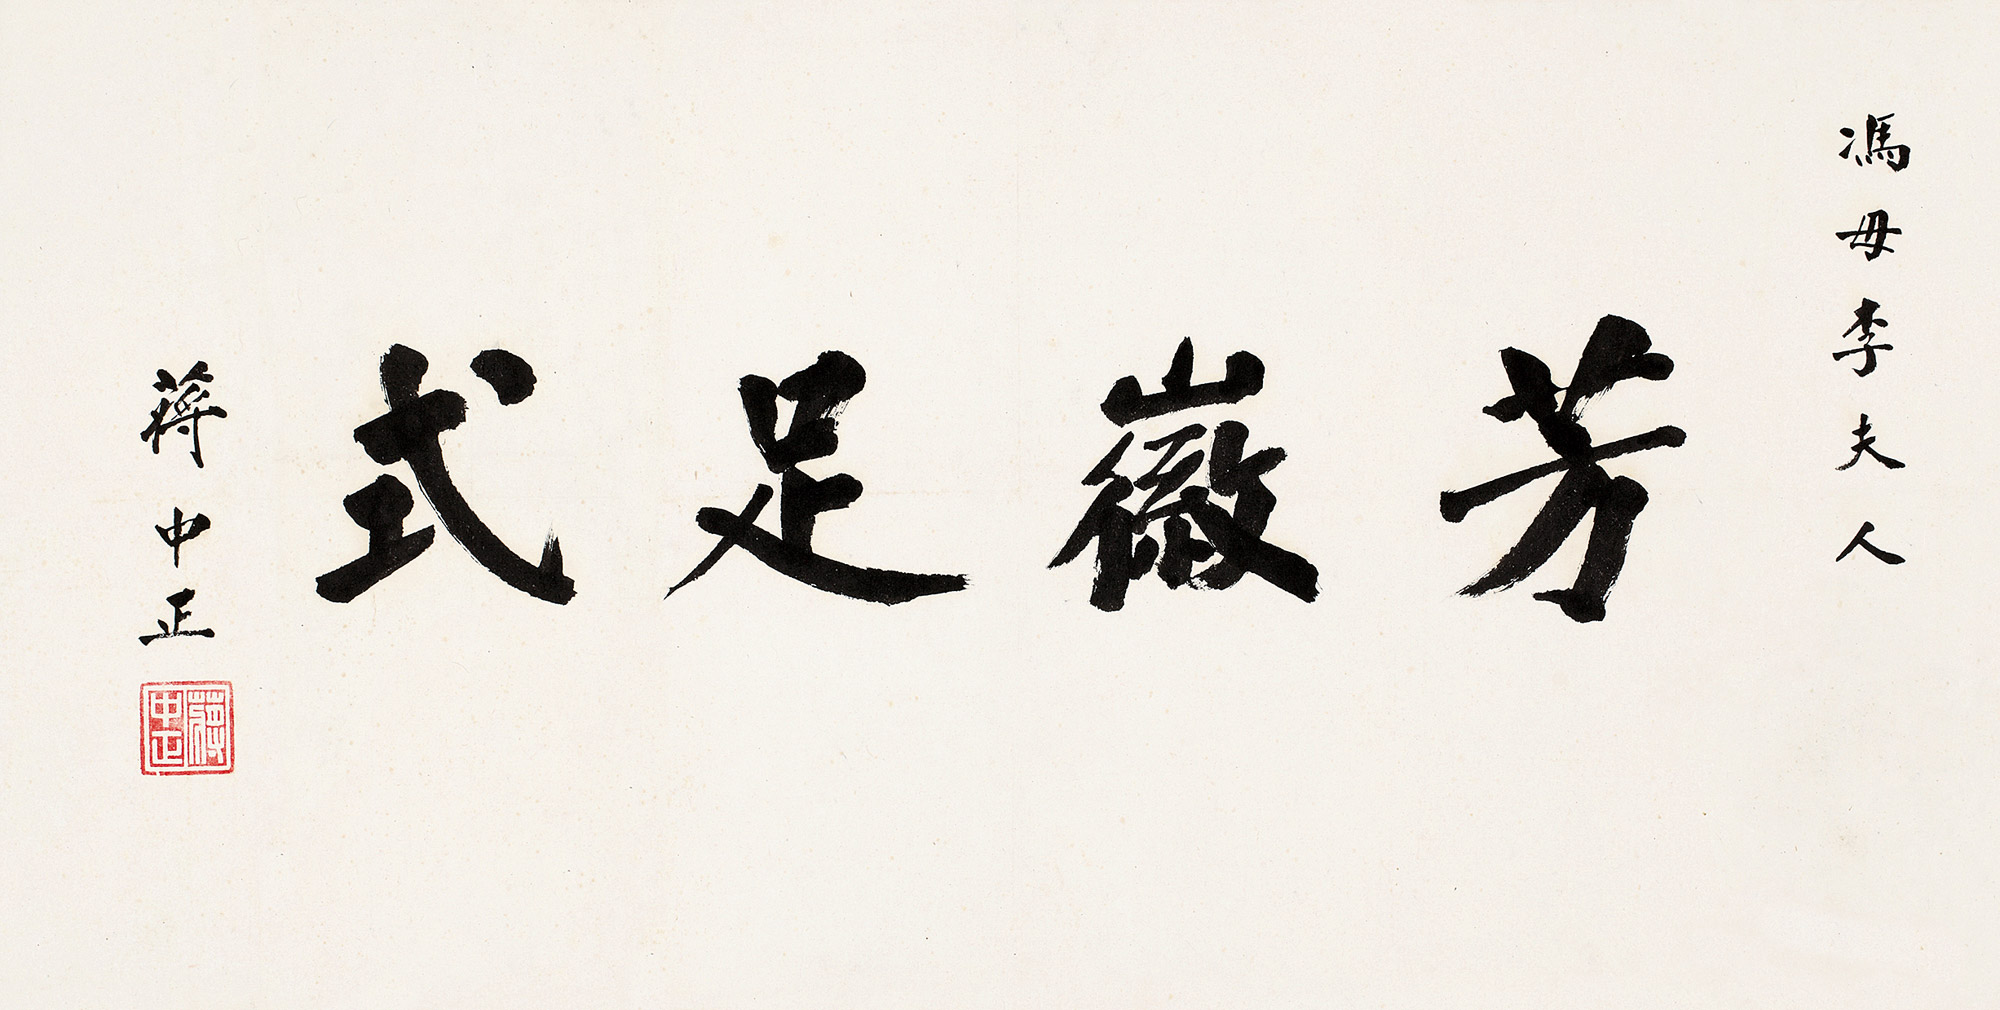 馮母李夫人
芳徽足式
蔣中正
蔣中正